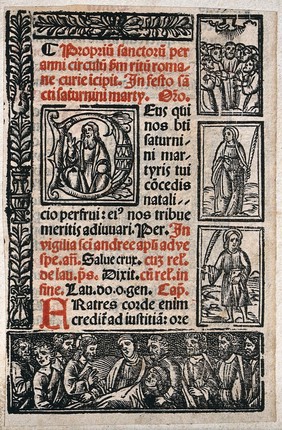 ¶ Propriū sanctorū per
anni circulū ẜm ritū roma-
ne curie īcipit. In festo sā
cti saturnini marty. Oro.
Deus qui
nos bti
saturni-
ni mar-
tyris tui
cōcedis
natali..
cio perfrui: eiꝰ nos tribue
meritis adiuuari. Per. In
vigilia sci andree apli ad ve
spe. añ. Salue crux. cuꝫ rel.
de lau. p̄s. Dixit. cū rel. in
fine. Lau. do. o. gen. Cap.
FRatres corde enim
credit ad iustitiā: ore